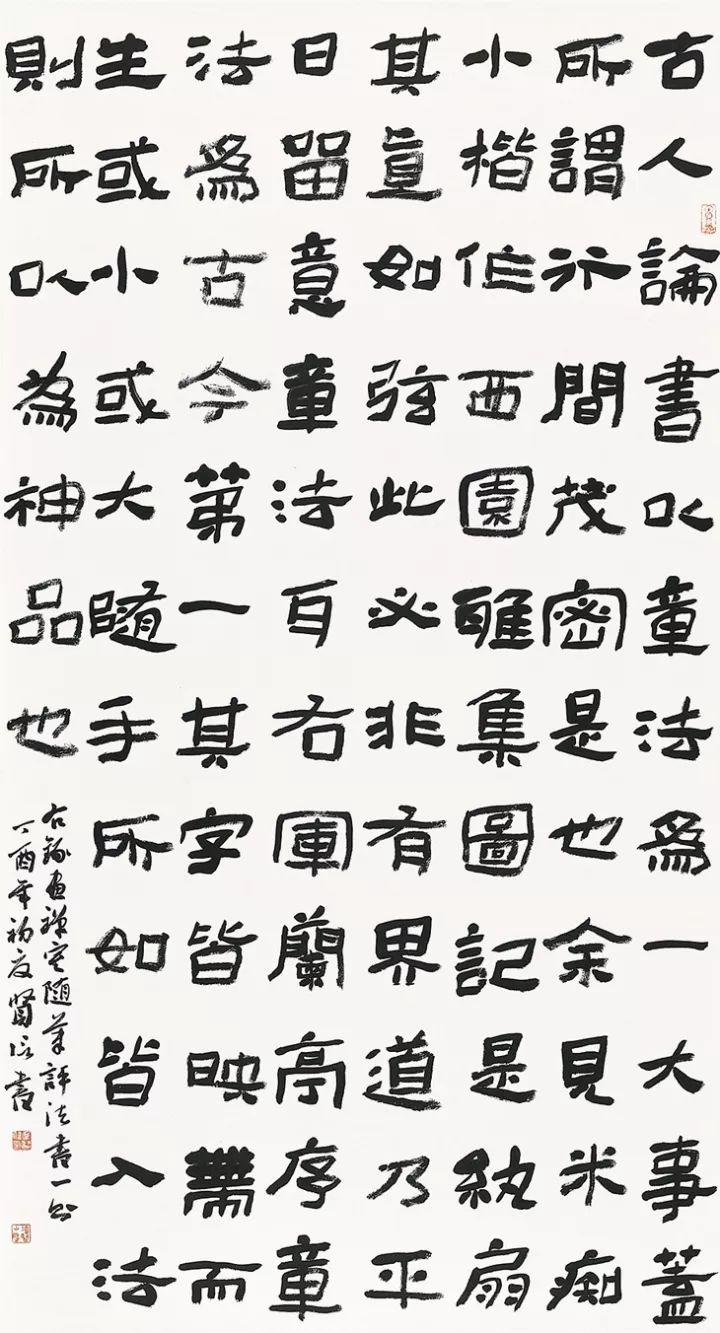 古人論書以章法爲一大事蓋
所謂行間茂密是也余見米痴
小楷作西園雅集圖記是紈扇
其直如弦此必非有界道乃平
日留意章法耳右軍蘭亭序章
法爲古今第一其字皆映帶而
生或小或大隨手所如皆入法
則所以為神品也
右錄畫禪室隨筆評法書一則
丁酉年初夏賢書